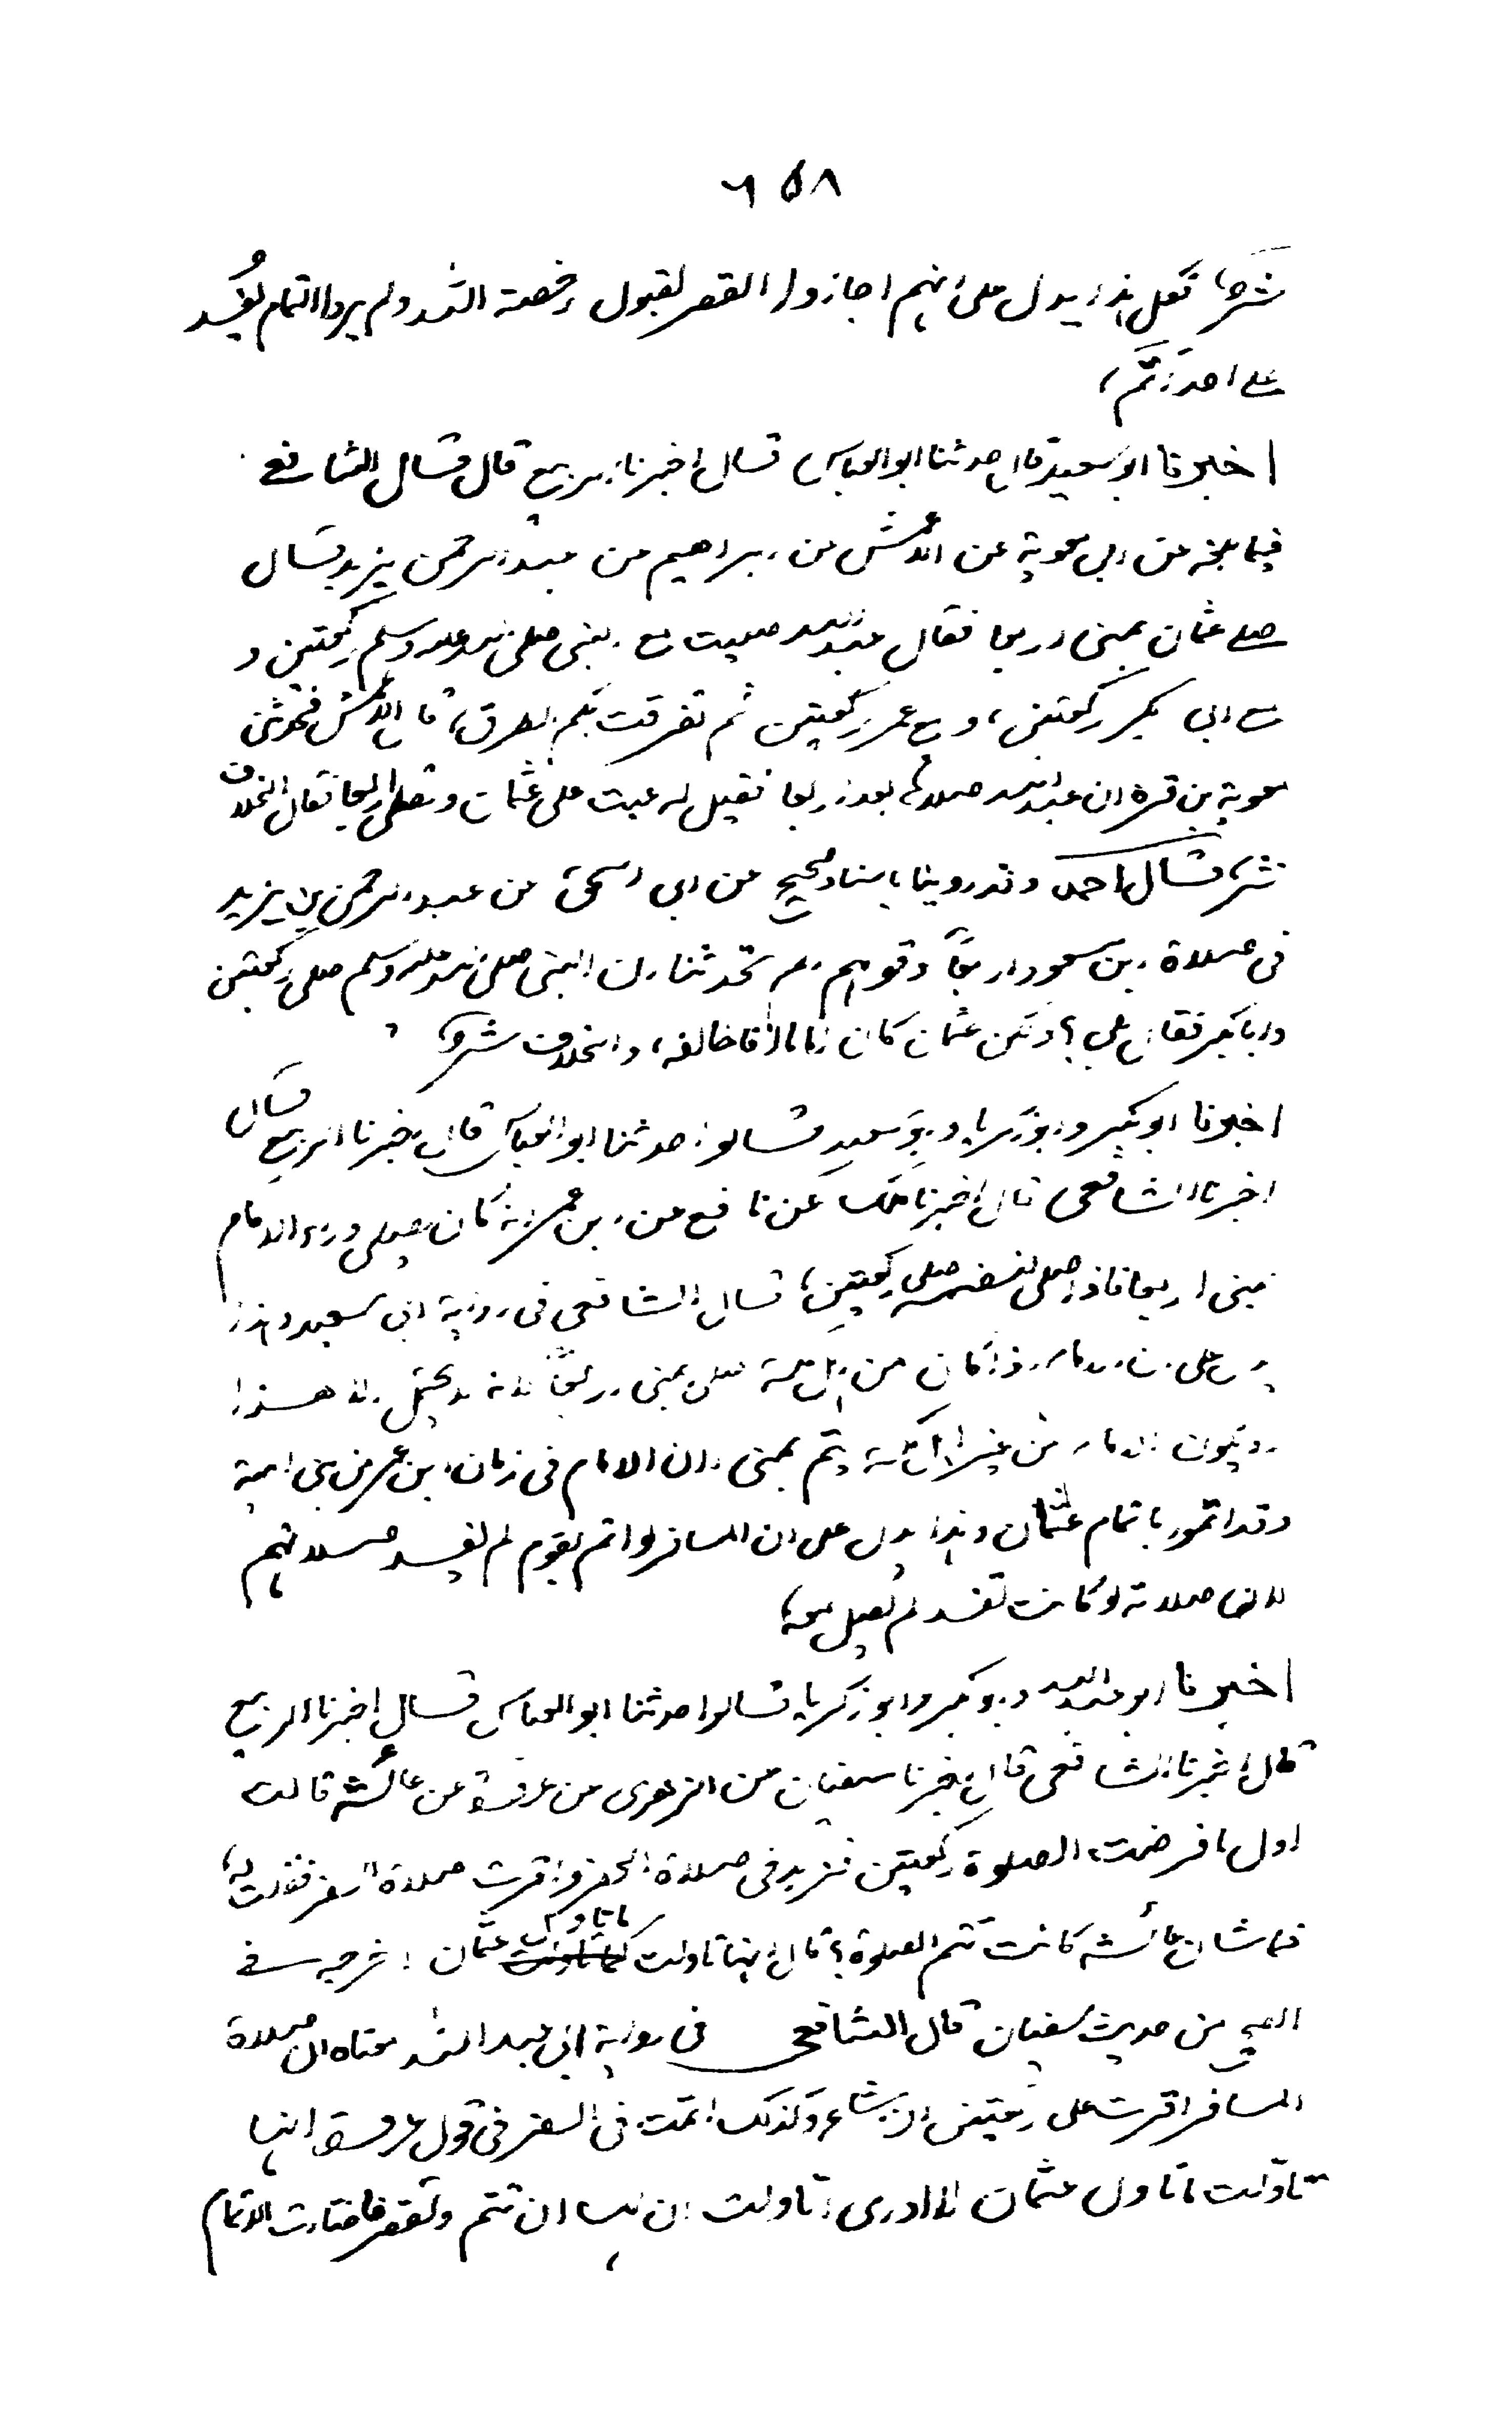 ٦٥٨
شرًا فكل هذا يدل على انهم اجازوا القصر لقبول رخصة الله ولم يروا التمام يفسد
على احد اتم،
اخبرنا ابو سعيد قال حدثنا ابو العباس قال اخبرنا الربيع قال قال الشافعي
فيما بلغه عن ابي معوية عن الاعمش عن ابراهيم عن عبد الرحمن بن يزيد قال
صلى عثمان بمنى اربعا فقال عبد الله صليت مع النبي صلى الله عليه وسلم ركعتين و
مع ابي بكر ركعتين، ومع عمر ركعتين ثم تفرقت بكم الطرق، قال الاعمش فحدثني
معوية بن قرة ان عبد الله صلاها بعد اربعا فقيل له عبت على عثمان وتصلى اربعا فقال الخلاف
شر، قال احمد وقد روينا باسناد صحيح عن ابي اسحق عن عبد الرحمن بن يزيد
في صلاة ابن مسعود اربعًا وقولهم الم تحدثنا ان النبي صلى الله عليه وسلم صلى ركعتين
وابا بكر فقال بلى؟ ولكن عثمان كان اماما فاخالفه، والخلاف شر،
اخبرنا ابو بكر وابو زكريا وابو سعيد قالوا حدثنا ابو العباس قال اخبرنا الربيع قال
اخبرنا الشافعي قال اخبرنا مالك عن نافع عن ابن عمر انه كان يصلي وراء الامام
بمنى اربعا فاذا صلى لنفسه صلى ركعتين، قال الشافعي في رواية ابي سعيد وهذا
يدل على ان الامام اذا كان من اهل مكة صلى بمنى اربعًا لانه لا يحتمل الا هذا
او يكون الامام من غير اهل مكة يتم بمنى لان الامام في زمان ابن عمر من بني امية
وقد اتموا باتمام عثمان وهذا يدل على ان المسافر لو اتم بقوم لم يفسد صلاتهم
لان صلاته لو كانت تفسد لم يصل معه،
اخبرنا ابو عبد الله وابو بكر وابو زكريا قالوا حدثنا ابو العباس قال اخبرنا الربيع
قال اخبرنا الشافعي قال اخبرنا سفيان عن الزهرى عن عروة عن عائشة قالت
اول ما فرضت الصلوة ركعتين فزيد في صلاة الحضر واقرت صلاة السفر فقلت له،
فما شان عائشة كانت تتم الصلوة؟ قال انها تاولت ما تاول عثمان اخرجه في
الصحيح من حديث سفيان قال الشافعي في رواية ابي عبد الله معناه ان صلاة
المسافر اقرت على ركعتين ان شاء وكذلك اتمت في السفر في قول عروة انها
تاولت ما تاول عثمان لا ادرى اتاولت ان لها ان تتم وتقصر فاختارت الاتمام